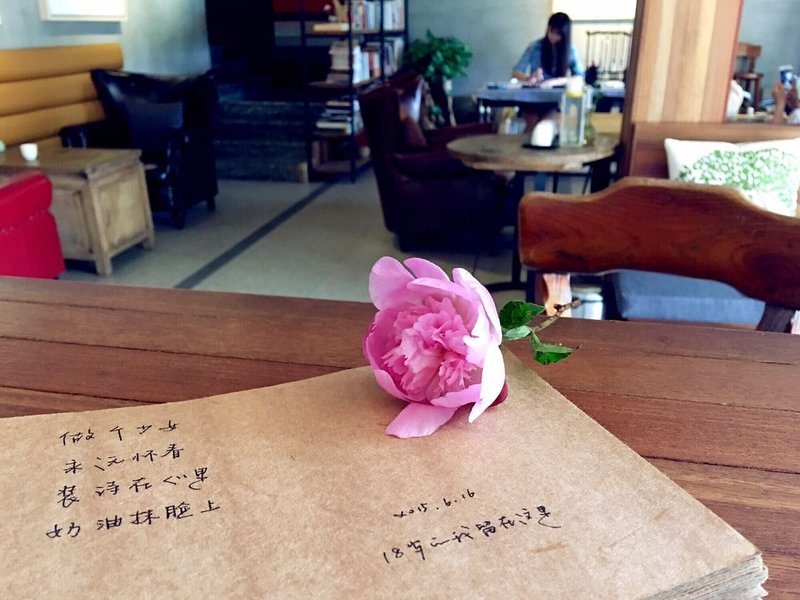 做个少女
永远怀春
装诗在心里
奶油抹脸上
2015.6.16
18岁的我留在这里